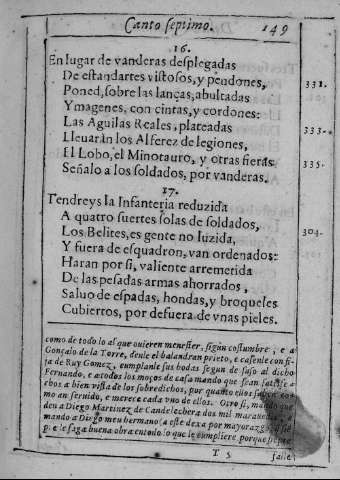 Canto septimo. 149
16.
En lugar de vanderas desplegadas
De estandartes vistosos, y pendones,
Poned, sobre las lanças, abultadas 331.
Ymagenes, con cintas, y cordones:
Las Aguilas Reales, plateadas 333.
Lleuaràn los Alferez de legiones,
El Lobo, el Minotauro, y otras fieras 335.
Señalo a los soldados, por vanderas.
17.
Tendreys la Infanteria reduzida
A quatro suertes solas de soldados,
Los Belites, es gente no luzida, 304.
Y fuera de esquadron, van ordenados:
Haran por si, valiente arremetida
De las pesadas armas ahorrados,
Saluo de espadas, hondas, y broqueles
Cubiertos, por defuera de vnas pieles.
como de todo lo al que ouieren menester, sigun costumbre, e a
Gonçalo de la Torre, denle el balandran prieto, e casenle con fi
ja de Ruy Gomez, cumplanle sus bodas segun de suso al dicho
Fernando, e a todos los moços de casa mando que sean satisfe
chos a bien vista de los sobredichos, por quanto ellos
mo an seruido, e merece cada vno de ellos. Otro si, mando que
den a Diego Martinez de Candelechera dos mil marauedis,
mando a Diego meu hermano a este dexa por mayorazgo,
p. e le faga buena obra en todo lo que le cumpliere porque siepre
T 5 faile